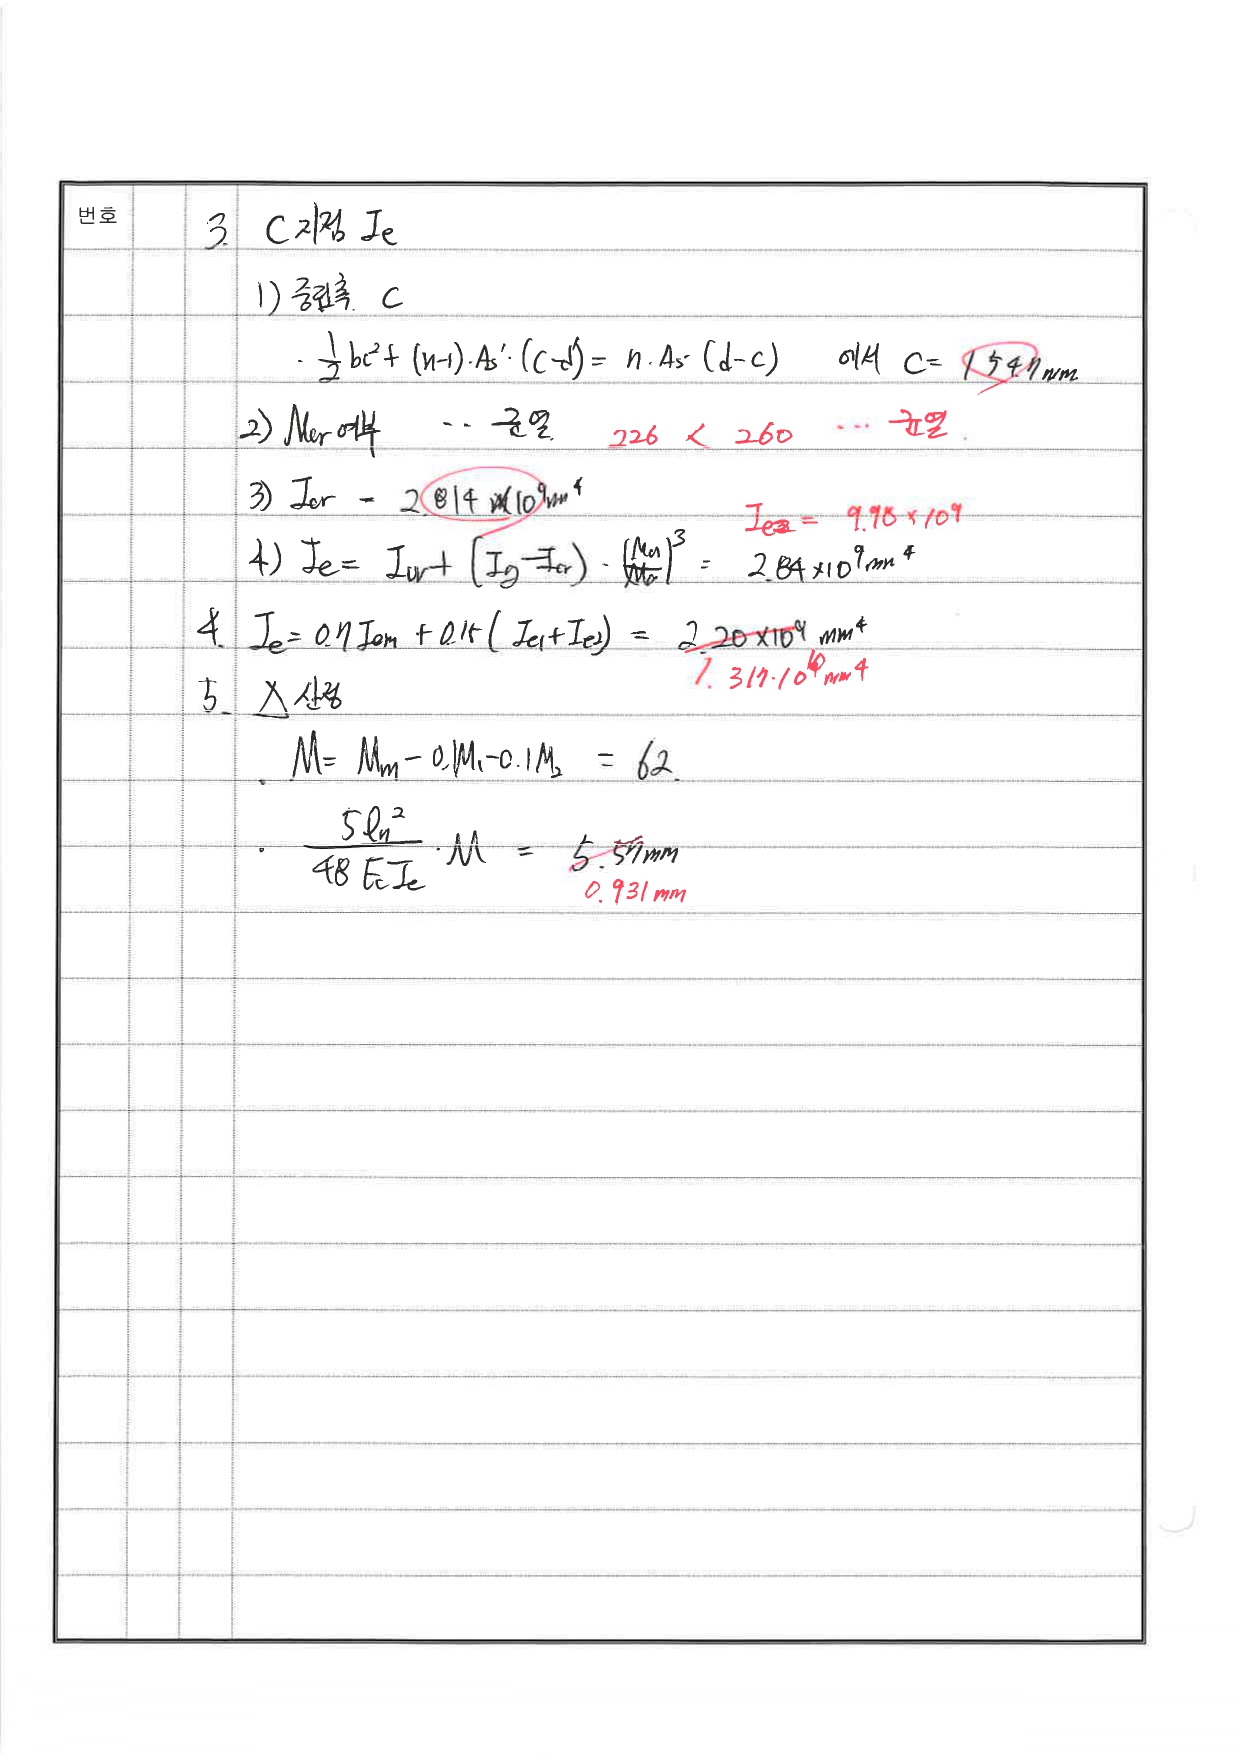 번호
3. C지점 Ie
1) 중립축 C
· 1/2 bc² + (n-1)·As'·(c-d') = n·As·(d-c) 에서 C= 154.7mm
2) Mcr여부 ·· 균열 226 < 260 ··· 균열.
3) Icr = 2.814×10⁹mm⁴
Ie2 = 9.98×10⁹
4) Ie = Icr + (Ig-Icr)·(Mcr/Ma)³ = 2.84×10⁹mm⁴
4. Ie = 0.7Iem + 0.15(Ie1+Ie2) = 2.20×10⁹ mm⁴
1.317·10¹⁰mm⁴
5. 산정
· M = Mm - 0.1M₁ - 0.1M₂ = 62.
· 5ln²/48EcIe · M = 5.57mm
0.931mm